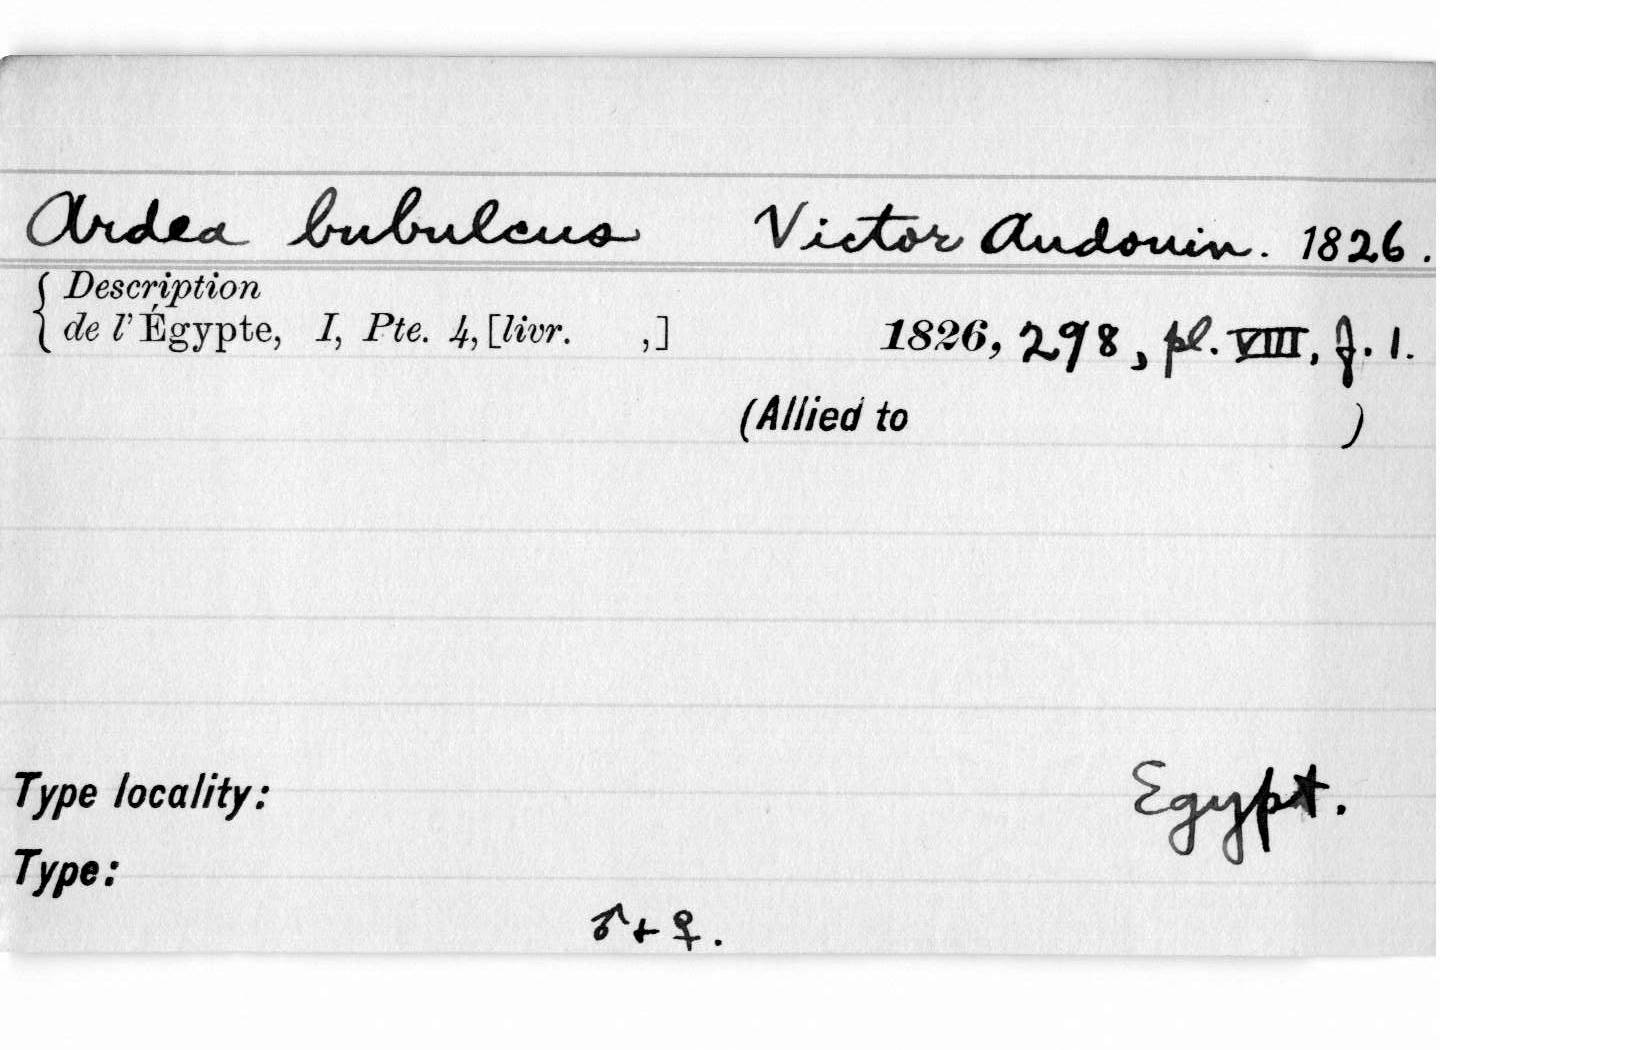 Ardea bubulcus Victor Audouin. 1826.
{ Description
de l'Égypte, I, Pte. 4, [livr. ,] 1826, 298, pl. VIII, f. 1.
(Allied to )
Type locality: Egypt.
Type:
♂ + ♀.